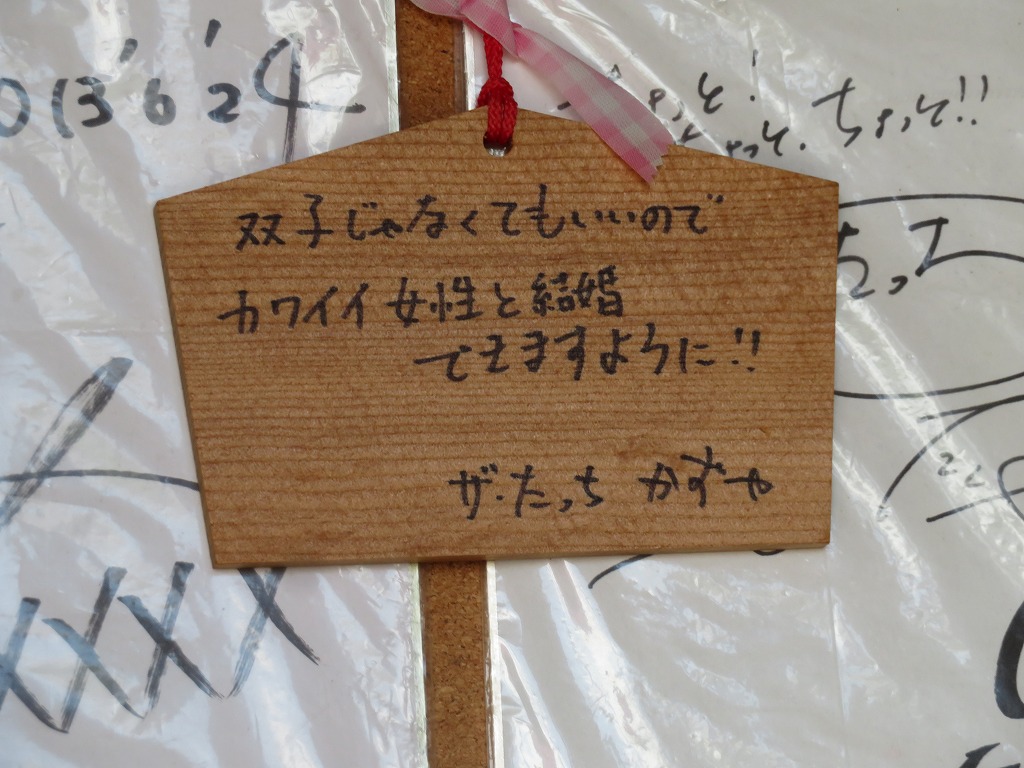 2013.6.24
ちょっと!
ちょっと.ちょっと!!
双子じゃなくてもいいので
カワイイ女性と結婚
できますように!!
ザ・たっち かずや